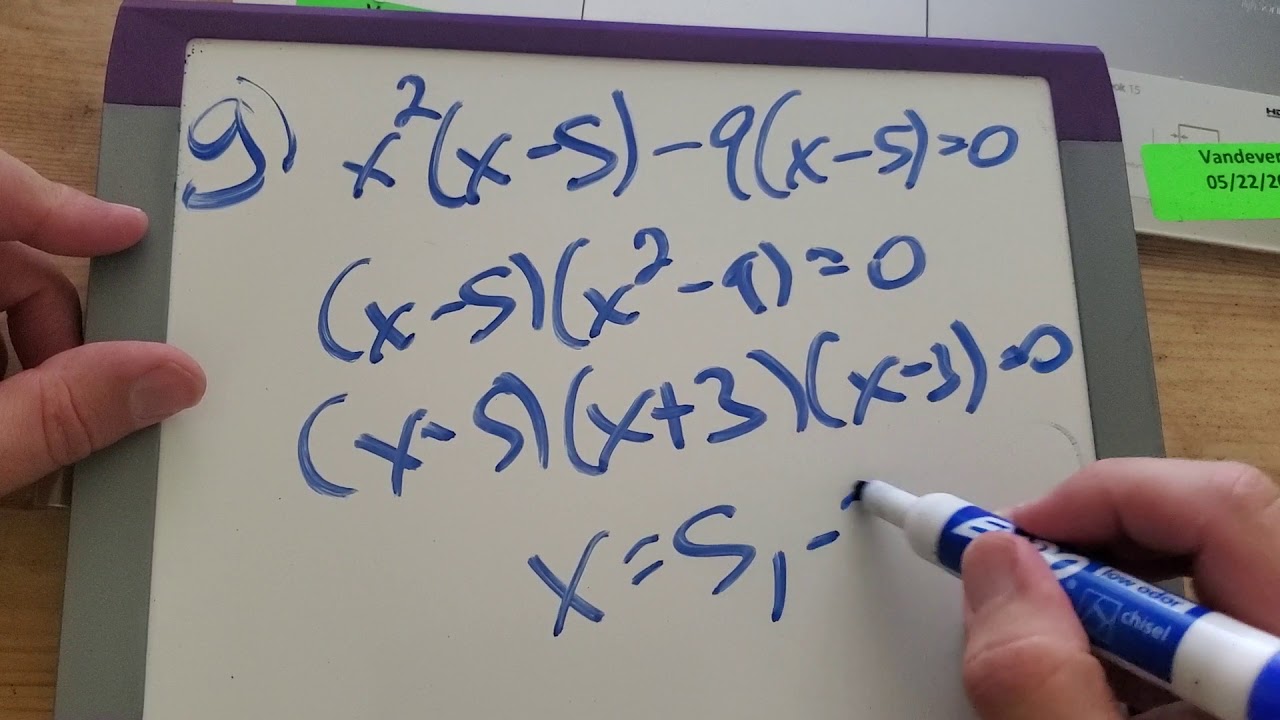 g) x²(x-5)-9(x-5)=0
(x-5)(x²-9)=0
(x-5)(x+3)(x-3)=0
x=5,-
Vandever
05/22/20
low odor
chisel